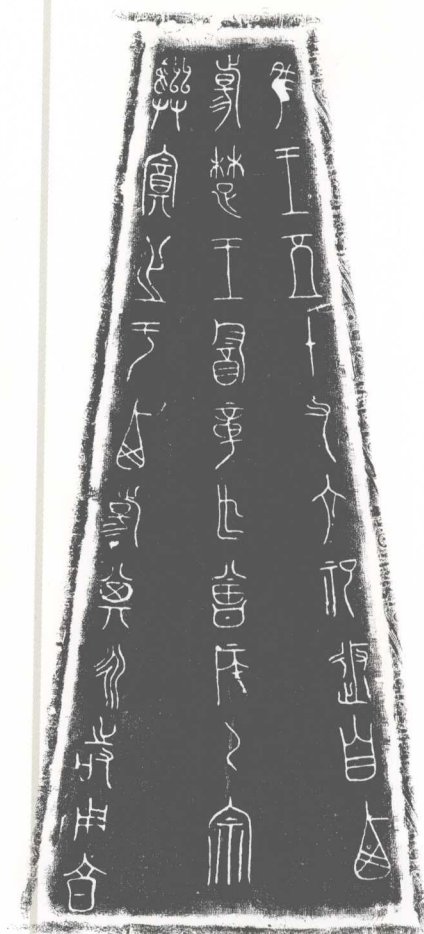 隹王五十又六祀返自西
昜楚王酓章乍曾侯乙宗
彝寘之于西昜其永時用享